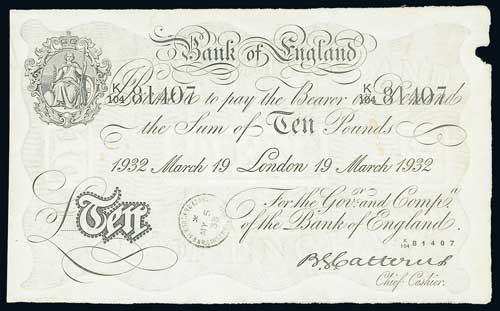 Bank of England
K/104 81407 K/104 81407
to pay the Bearer on Demand
the Sum of Ten Pounds
1932 March 19 London 19 March 1932
For the Govr. and Compa.
of the Bank of England.
£Ten
MY 5
33
K/104 81407
B.G. Catterns
Chief Cashier.